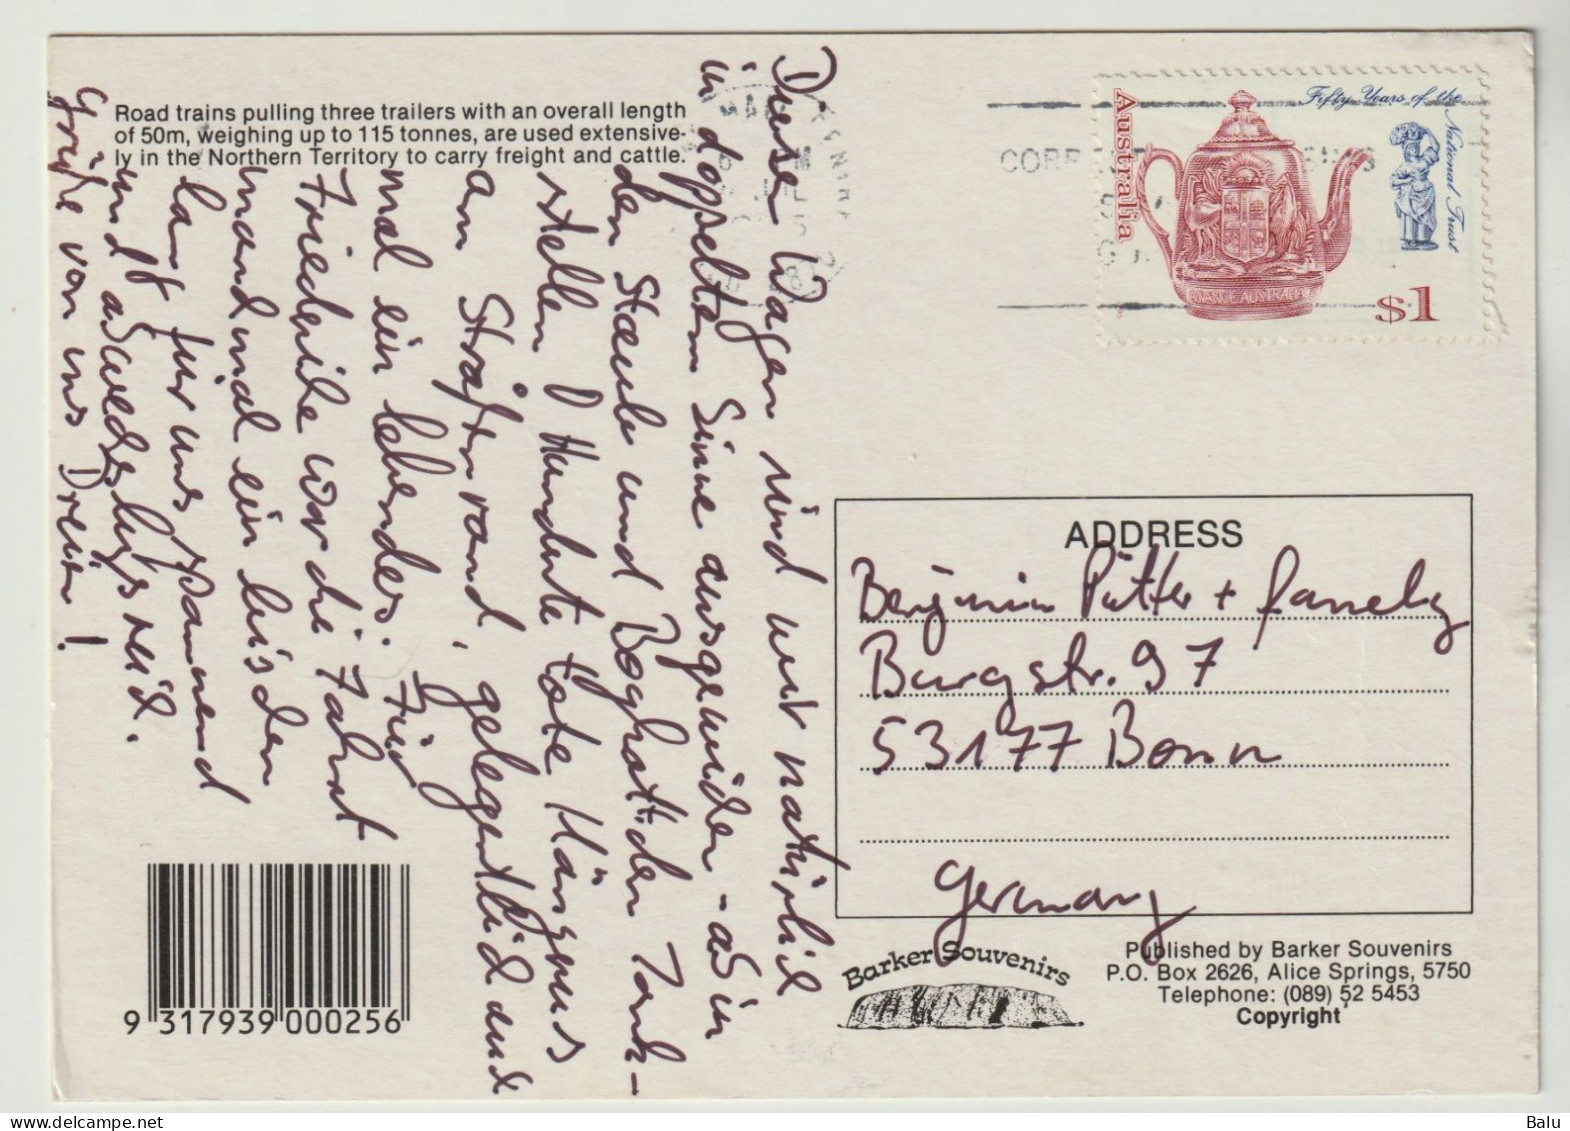 Road trains pulling three trailers with an overall length
of 50m, weighing up to 115 tonnes, are used extensive-
ly in the Northern Territory to carry freight and cattle.
Diese Wagen sind wir natürlich
in doppeltem Sinne ausgewichen - ab in
den Staub und
stellen Hunderte tote Kängurus
am Straßenrand, gelegentlich auch
mal ein lebendes. Für
Friederike war die Fahrt
manchmal ein bisschen
lang für uns spannend
und abwechslungsreich.
Grüße von uns Dreien!
Australia
Fifty Years of the National Trust
ADVANCE AUSTRALIA
$1
ADDRESS
Benjamin Pütter + family
Burgstr. 97
53177 Bonn
Germany
9 317939 000256
Barker Souvenirs
Published by Barker Souvenirs
P.O. Box 2626, Alice Springs, 5750
Telephone: (089) 52 5453
Copyright
Balu
www.delcampe.net